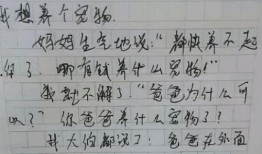 我想养个宠物.
妈妈生气地说:“都快养不起
你了.哪有钱养什么宠物!”
我就不解了:“爸爸为什么可
以?”你爸爸养什么宠物了?
我大伯都说了:爸爸在外面